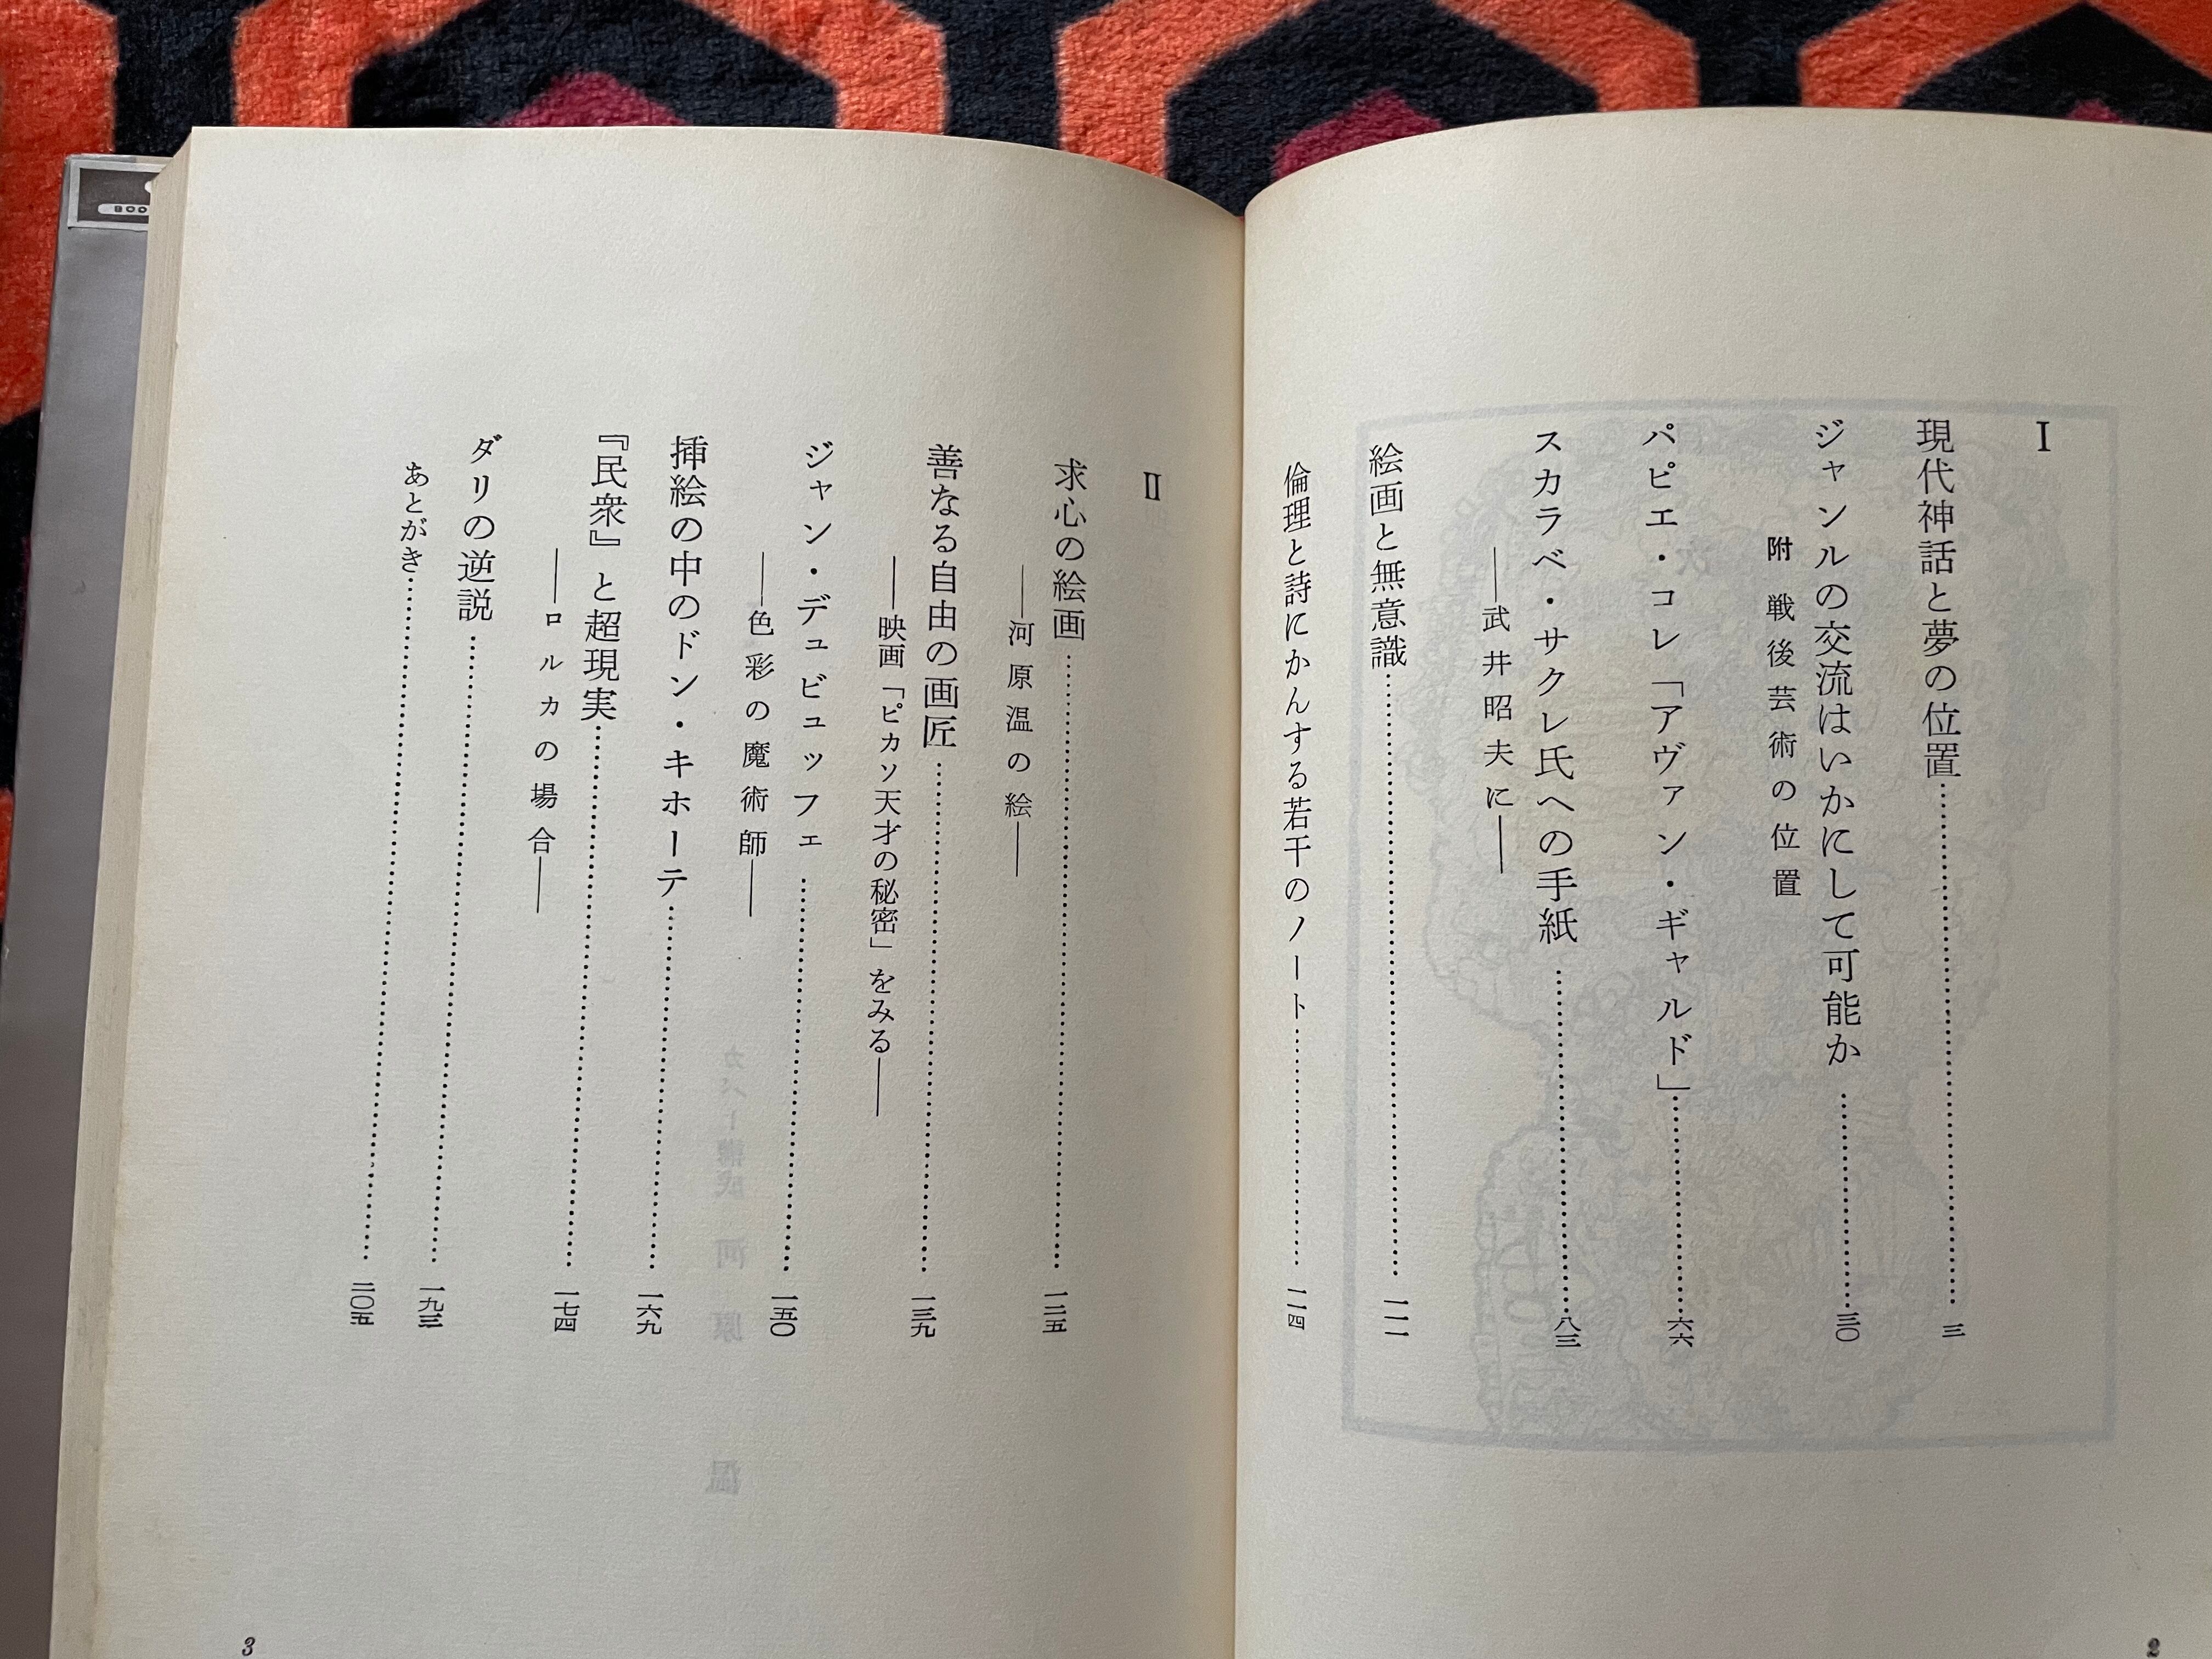 I
現代神話と夢の位置…………三
ジャンルの交流はいかにして可能か…………三〇
附　戦後芸術の位置
パピエ・コレ「アヴァン・ギャルド」…………六六
スカラベ・サクレ氏への手紙…………八三
――武井昭夫に――
絵画と無意識…………一一一
倫理と詩にかんする若干のノート…………一一四
2
II
求心の絵画…………一二五
――河原温の絵――
善なる自由の画匠…………一三九
――映画「ピカソ天才の秘密」をみる――
ジャン・デュビュッフェ…………一五〇
――色彩の魔術師――
挿絵の中のドン・キホーテ…………一六九
『民衆』と超現実…………一七四
――ロルカの場合――
ダリの逆説…………一九三
あとがき…………二〇五
3